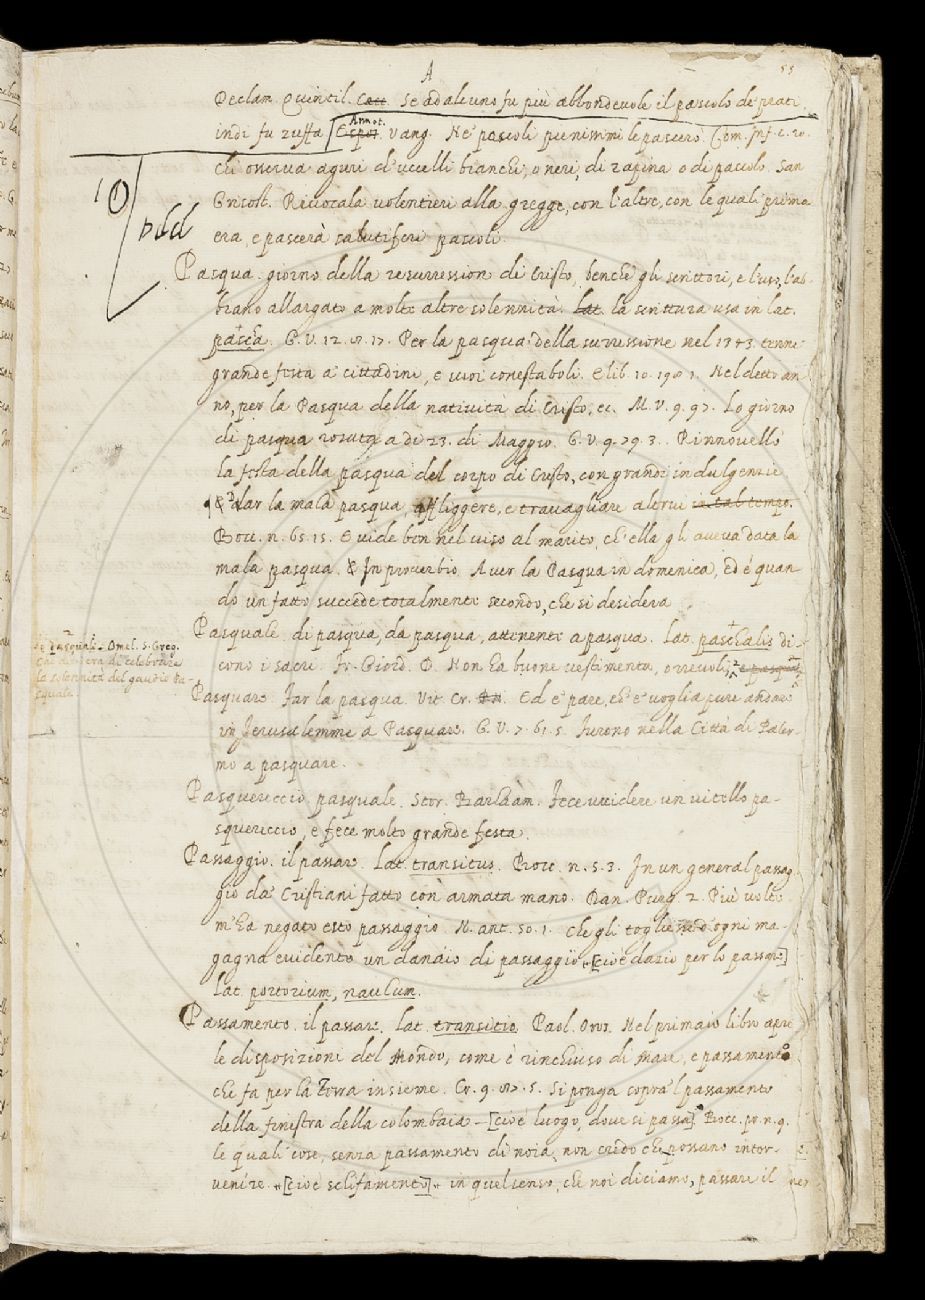 A
55
Declam. Quintil. Cacc. Se ad alcuno fu più abbondevole il pascolo de' prati
indi fu zuffa Espos. Annot. Vang. Ne' pascoli pienissimi le pascero. Com. Inf. c. 20.
chi osserva aguri d'uccelli bianchi, o neri, di rapina o di pascolo. San
Grisost. Rivocala volentieri alla gregge, con l'altre, con le quali prima
era, e pascerà salutiferi pascoli.
10
Pasqua. giorno della resurression di Cristo, benchè gli scrittori, e l'uso, l'ab-
biano allargato a molte altre solennità. Lat. la scrittura usa in lat.
pascha. G. V. 12. 8. 17. Per la pasqua della surressione nel 1343. tenne
grande festa a' cittadini, e suoi conestaboli. E lib. 10. 198. 1. Nel detto an-
no, per la Pasqua della natività di Cristo, ec. M. V. 9. 97. Lo giorno
di pasqua rosata a dì 23. di Maggio. G. V. 9. 79. 3. Rinnovello
la festa della pasqua del corpo di Cristo, con grandi indulgenzie
& dar la mala pasqua, affliggere, e travagliare altrui in tal tempo.
Bocc. n. 65. 15. E vide ben nel viso al marito, ch'ella gli aveva data la
mala pasqua. & In proverbio. Aver la Pasqua in domenica, ed è quan-
do un fatto succede totalmente secondo, che si desidera
Pasquale. di pasqua, da pasqua, attenente a pasqua. Lat. paschalis di-
cono i sacri. Fr. Giord. D. Non ha buone vestimenta, orrevoli, e pasquali
2 pasquali. Omel. S. Greg.
era di celebrare
la solennità del gaudio pa-
squale
Pasquare. Far la pasqua. Vit. Cr. Ed e' pare, ch'e' voglia pure andare
in Jerusalemme a Pasquare. G. V. 7. 61. 5. Furono nella Città di Paler-
mo a pasquare.
Pasquereccio. pasquale. Stor. Barlaàm. Fece uccidere un vitello pa-
squereccio, e fece molto grande festa.
Passaggio. il passare. Lat. transitus. Bocc. n. 5. 3. In un general passag-
gio da' Cristiani fatto con armata mano. Dan. Purg. 2. Più volte
m'ha negato esto passaggio. N. ant. 50. 1. che gli toglie ad ogni ma-
gagna evidente un danaio di passaggio [cioè dazio per lo passare]
Lat. portorium, naulum.
Passamento. il passare. Lat. transitio. Paol. Oros. Nel primaio libro apri
le disposizioni del Mondo, come è rinchiuso di Mare, e passamento
che fa per la Terra insieme. Cr. 9. 87. 5. Si ponga sopra 'l passamento
della finestra della colombaia - [cioè luogo, dove si passa] Bocc. pr. n. 9.
le quali cose, senza passamento di noia, non credo che possano inter-
venire. [cioè schifamento] in quel senso, che noi diciamo, passare il